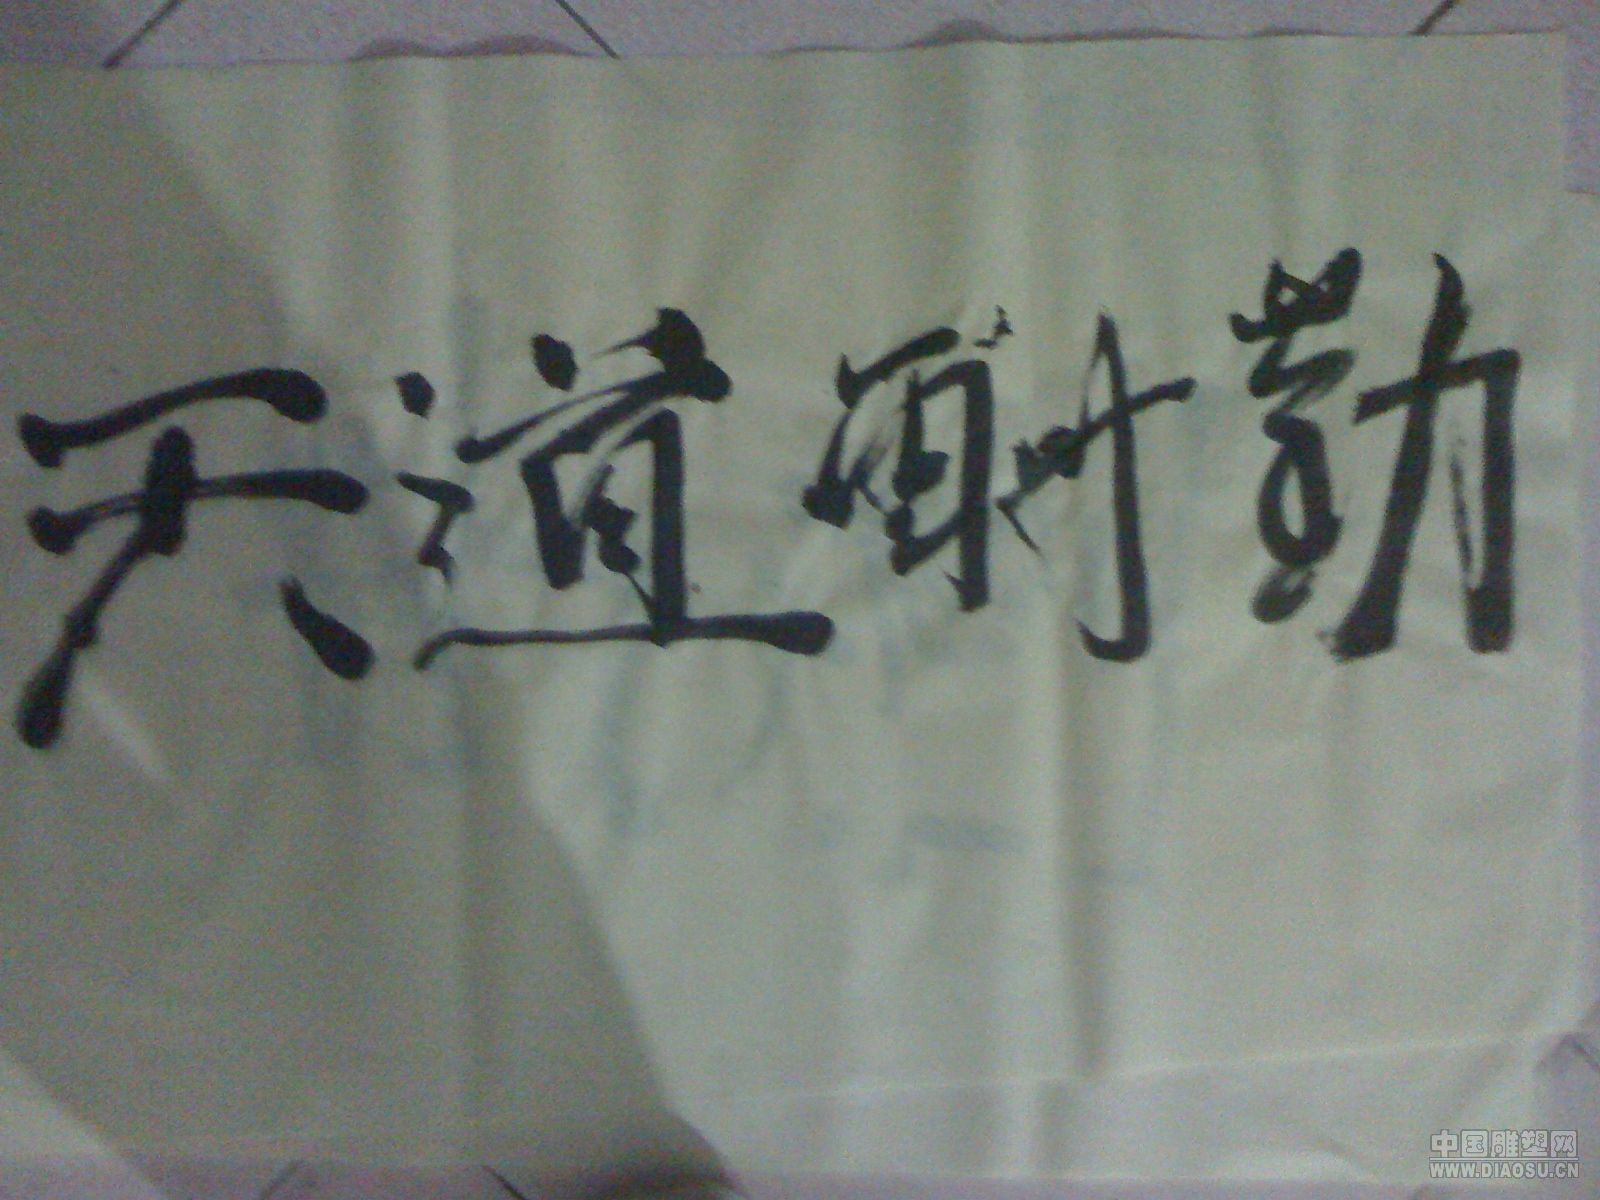 天道酬勤
中国雕塑网
WWW.DIAOSU.CN